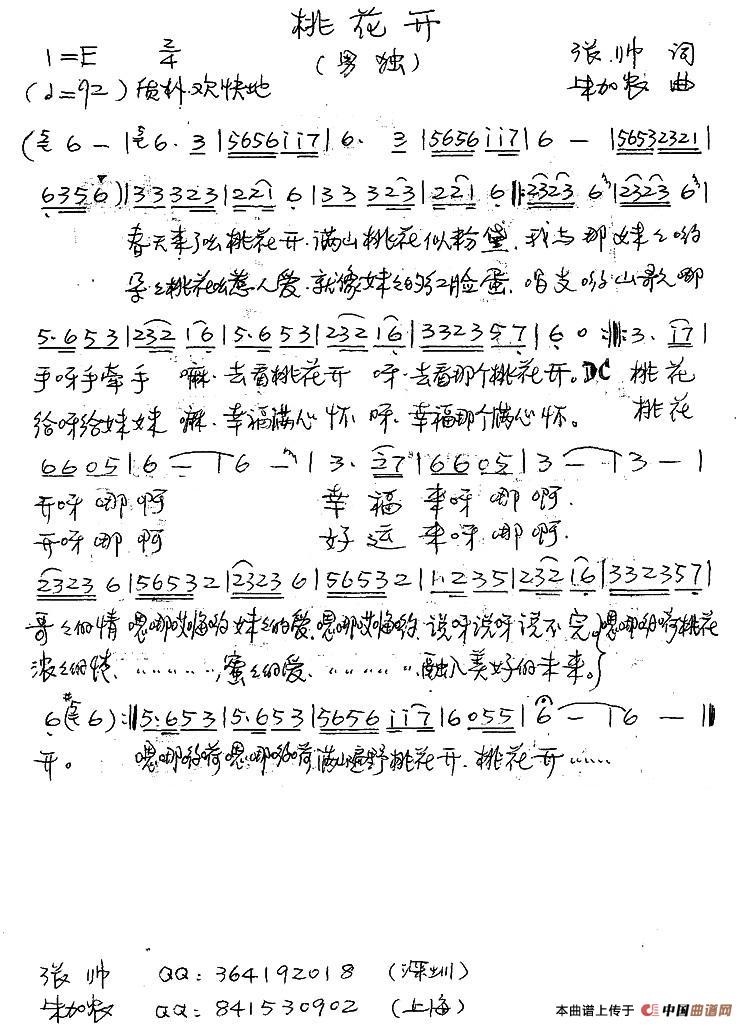 桃花开
1=E 2/4 (男独) 张帅 词
(♩=92) 质朴.欢快地 朱加农 曲
6 - | 6. 3 | 5656 i i 7 | 6. 3 | 5656 i i 7 | 6 - | 56532321 |
6356) | 33323 | 221 6 | 33 323 | 221 6 |: 2323 6 | 2323 6 |
春天来了么桃花开.满山桃花似粉黛.我与那妹々哟
朵々桃花么惹人爱.就像妹々的红脸蛋.唱支哟山歌哪
5.653 | 232 16 | 5.653 | 232 16 | 332357 | 6 0 :|: 3. i7 |
手呀手牵手 嘛.去看桃花开 呀.去看那个桃花开。DC 桃花
给呀给妹妹 嘛.幸福满心怀 呀.幸福那个满心怀。 桃花
6605 | 6 - | 6 - | 3. i7 | 6605 | 3 - | 3 - |
开呀哪啊 幸福来呀哪啊.
开呀哪啊 好运来呀哪啊.
2323 6 | 56532 | 2323 6 | 56532 | 1 1 235 | 232 16 | 332357 |
哥々的情 嗯哪哎哟妹々的爱.嗯哪哎哟 说呀说呀说不完。嗯哪哟嗬桃花
浓々的情、………,蜜々的爱、………融入美好的未来。
6 ( 6) :| 5.653 | 5.653 | 5656 i i 7 | 6055 | 6 - | 6 - ||
开。 嗯哪哟嗬嗯哪哟嗬满山遍野桃花开.桃花开……
张帅 QQ:364192018 (深圳)
朱加农 QQ:841530902 (上海)
本曲谱上传于 中国曲谱网